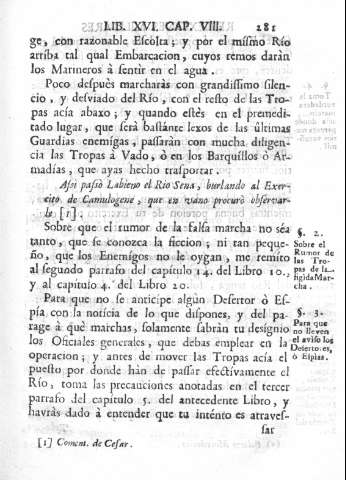 LIB. XVI. CAP. VIII. 281
ge, con razonable Escolta; y por el mismo Rio
arriba tal qual Embarcacion, cuyos remos daràn
los Marineros à sentir en el agua.
Poco despuès marcharàs con grandissimo silen-
cio, y desviado del Rio, con el resto de las Tro-
pas acia abaxo; y quando estès en el premedi-
tado lugar, que serà bastante lexos de las ùltimas
Guardias enemigas, passaràn con mucha diligen-
cia las Tropas à Vado, ò en los Barquillos ò Ar-
madias, que ayas hecho trasportar.
Assi passò Labieno el Rio Sena, burlando al Exer-
cito de Camulogene, que en vano procurò observar-
le [1].
Sobre que el rumor de la falsa marcha no sèa
tanto, que se conozca la ficcion; ni tan peque-
ño, que los Enemigos no le oygan, me remito
al segundo parrafo del capitulo 14. del Libro 10.,
y al capitulo 4. del Libro 20.
§. 2.
Sobre el
Rumor de
las Tro-
pas de la
figida Mar-
cha.
Para que no se anticipe algùn Desertor ò Es-
pia con la noticia de lo que dispones, y del pa-
rage à què marchas, solamente sabràn tu designio
los Oficiales generales, que debas emplear en la
operacion; y antes de mover las Tropas acia el
puesto por donde han de passar efectivamente el
Rio, toma las precauciones anotadas en el tercer
parrafo del capitulo 5. del antecedente Libro, y
havràs dado à entender que tu intènto es atraves-
sar
§. 3.
Para que
no lleven
el aviso los
Desertores,
ò Espias.
[1] Coment. de Cesar.